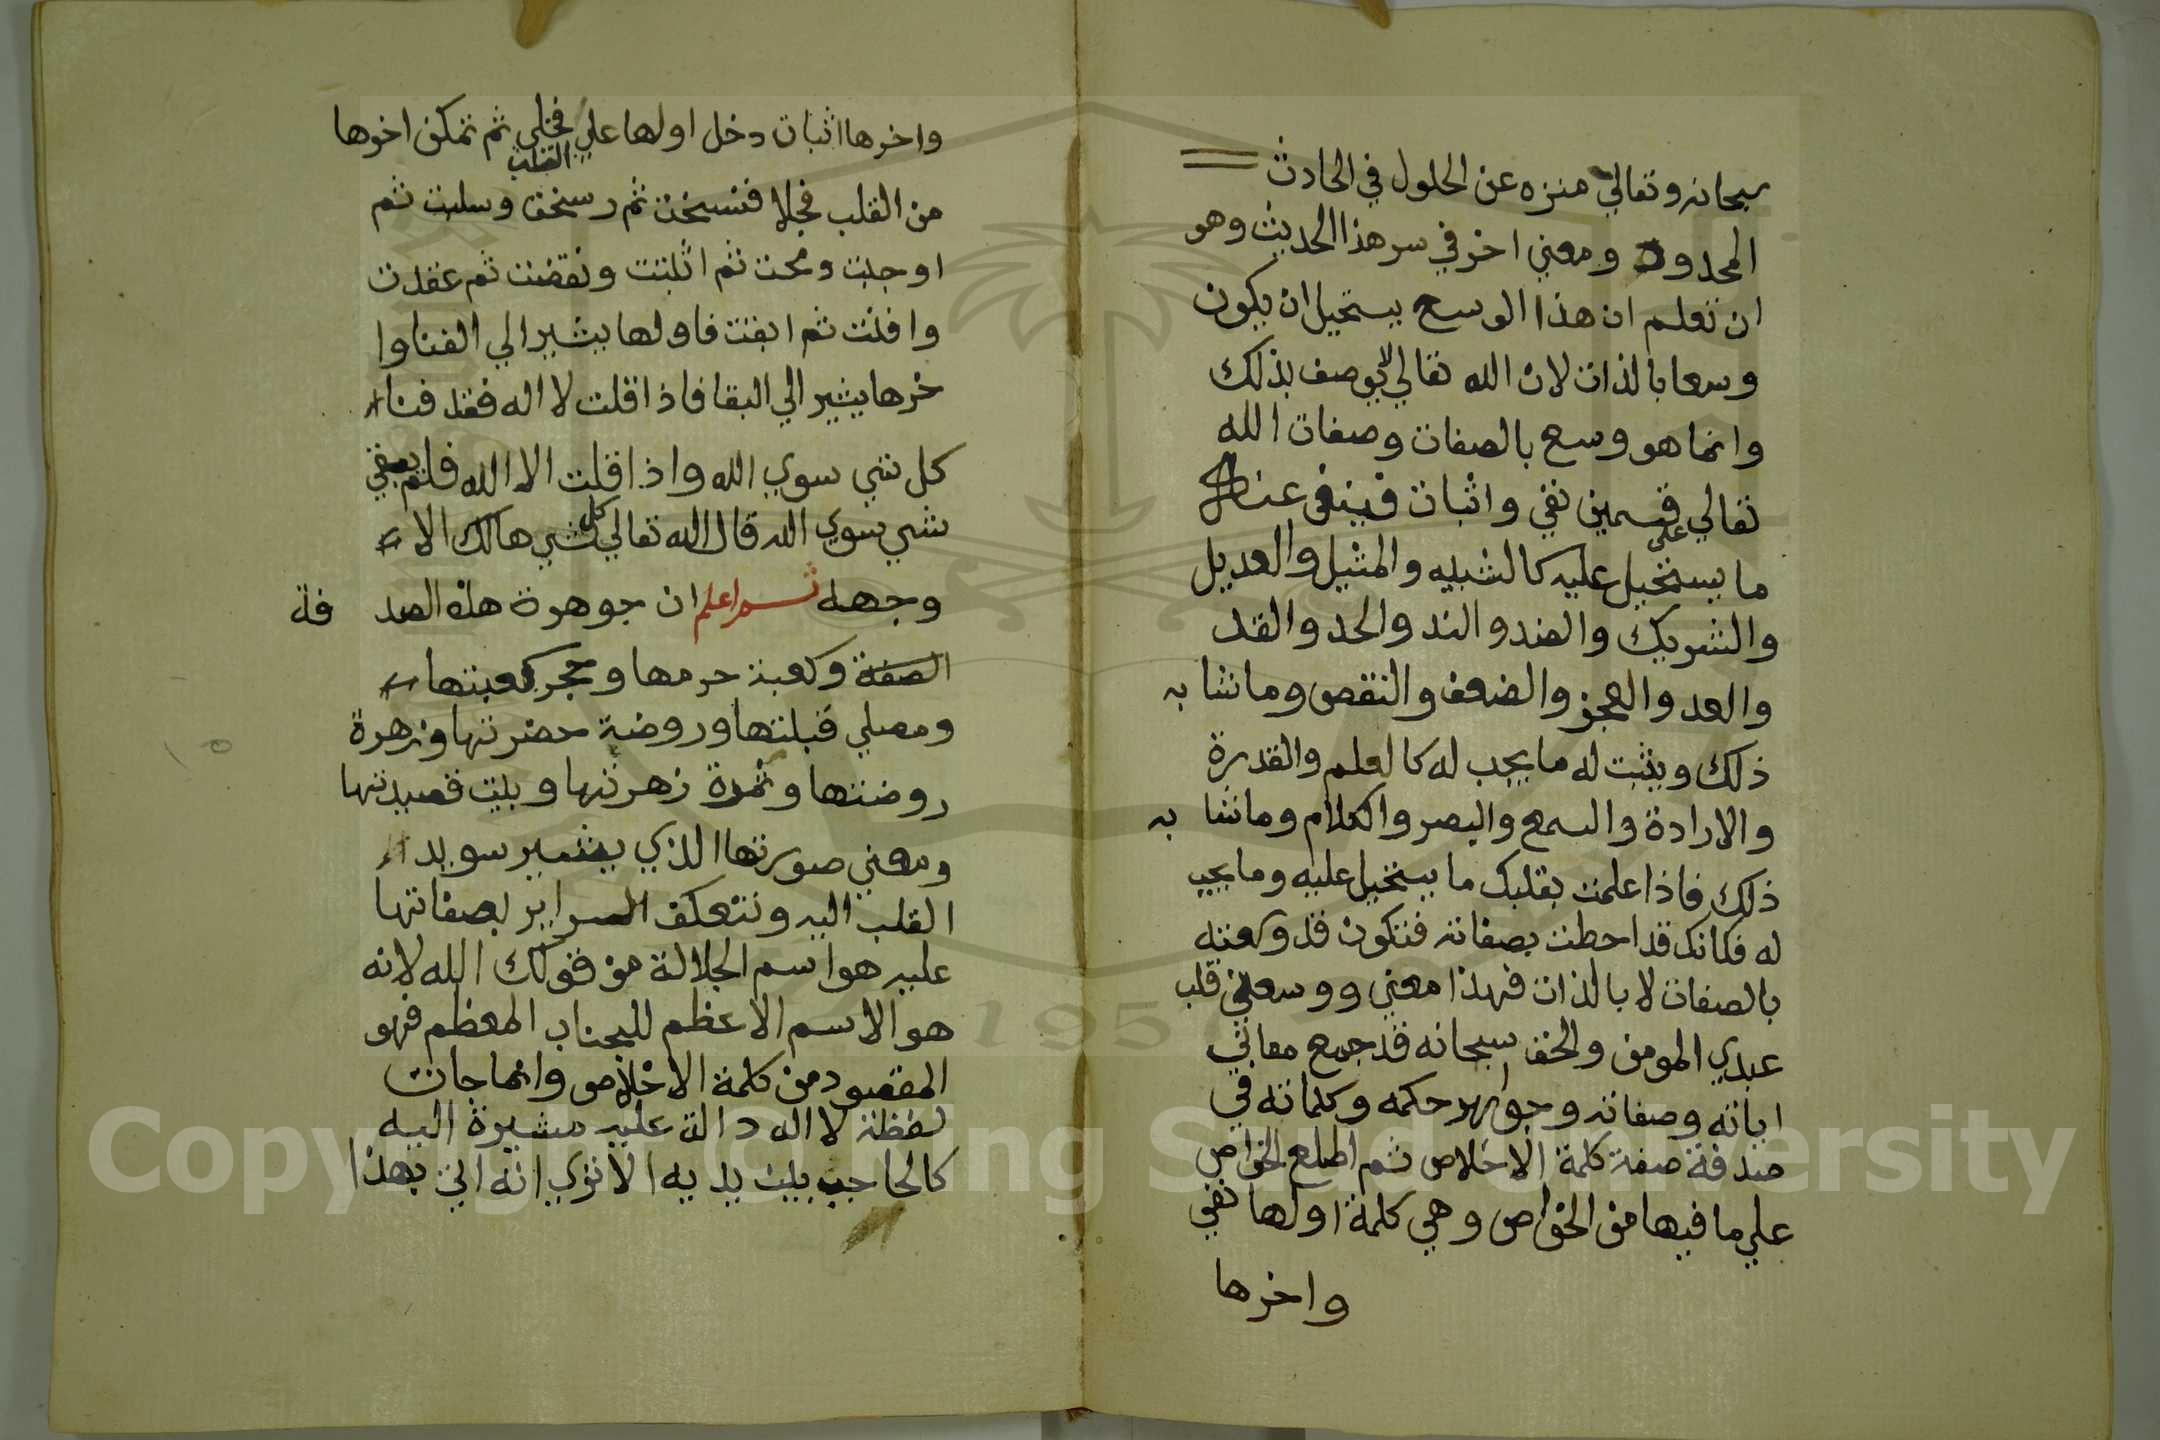 سبحانه وتعالي منزه عن الحلول في الحادث
المحدود ومعني اخر في سر هذا الحديث وهو
ان تعلم ان هذا الوسع يستحيل ان يكون
وسعا بالذات لان الله تعالي لا يوصف بذلك
وانما هو وسع بالصفات وصفات الله
تعالي على قسمين نفي واثبات فينفي عنه
ما يستحيل عليه كالشبيه والمثيل والعديل
والشريك والضد والند والحد والقد
والعد والعجز والضعف والنقص وما شا به
ذلك ويثبت له ما يجب له كالعلم والقدرة
والارادة والسمع والبصر والكلام وما شا به
ذلك فاذا علمت بقلبك ما يستحيل عليه وما يجب
له فكانك قد احطت بصفاته فتكون قد وسعته
بالصفات لا بالذات فهذا معني ووسعني قلب
عبدي المومن والحق سبحانه قد جمع معاني
اياته وصفاته وجواهر حكمه وكلماته في
صدفة صفة كلمة الاخلاص ثم اطلع الخواص
علي ما فيها من الخواص وهي كلمة اولها نفي
واخرها
واخرها اثبات دخل اولها علي القلب فخلي ثم تمكن اخرها
من القلب فجلا فنسخت ثم رسخت وسلبت ثم
اوجبت ومحت ثم اثبتت ونقضت ثم عقدت
وافنت ثم ابقت فاولها يشير الي الفنا وا
خرها يشير الي البقا فاذا قلت لا اله فقد فنا
كل شي سوي الله واذا قلت الا الله فلم يبقي
شي سوي الله قال الله تعالي كل شي هالك الا
وجهه ثم اعلم ان جوهرة هذه الصد فة
الصفة وكعبة حرمها وحجر كعبتها
ومصلي قبلتها وروضة حضرتها وزهرة
روضتها وثمرة زهرتها وبيت قصيدتها
ومعني صورتها الذي يشير سويدا
القلب اليه وتتعكف السراير بصفاتها
عليه هو اسم الجلالة من قولك الله لانه
هو الاسم الاعظم للجناب المعظم فهو
المقصود من كلمة الاخلاص وانما جات
لفظة لا اله دالة عليه مشيرة اليه
كالحاجب بين يديه الا تري انه اتي بهذا
Copyright © King Saud University
195